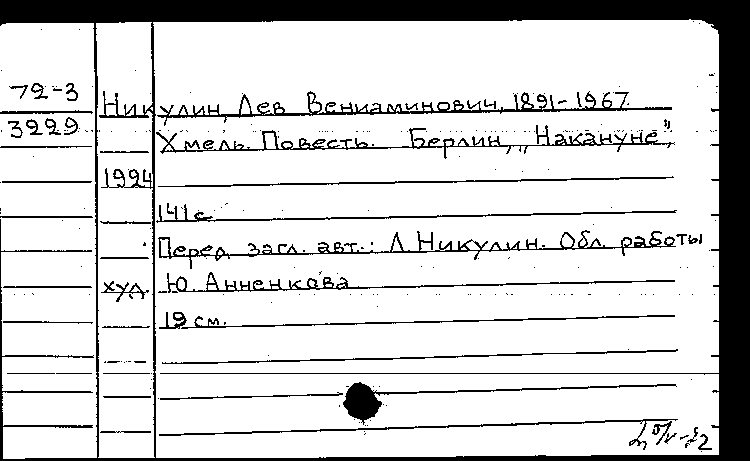 72-3
Никулин, Лев Вениаминович, 1891-1967
3229
Хмель. Повесть. Берлин, „Накануне",
1924
141 с
Перед загл. авт.: Л. Никулин. Обл. работы
худ. Ю. Анненкова
19 см.